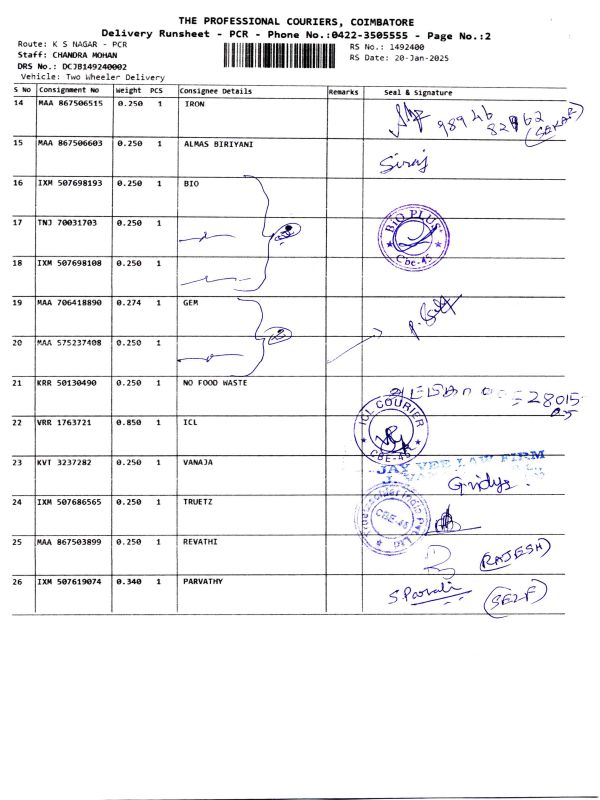 THE PROFESSIONAL COURIERS, COIMBATORE
Delivery Runsheet - PCR - Phone No.:0422-3505555 - Page No.:2
Route: K S NAGAR - PCR
RS No.: 1492400
Staff: CHANDRA MOHAN
RS Date: 20-Jan-2025
DRS No.: DCJB149240002
Vehicle: Two Wheeler Delivery
S No Consignment No Weight PCS Consignee Details Remarks Seal & Signature
14 MAA 867506515 0.250 1 IRON
(SEKAR)
15 MAA 867506603 0.250 1 ALMAS BIRIYANI
Siraj
16 IXM 507698193 0.250 1 BIO
BIO PLUS
Cbe-45
17 TNJ 70031703 0.250 1
18 IXM 507698108 0.250 1
19 MAA 706418890 0.274 1 GEM
20 MAA 575237408 0.250 1
21 KRR 50130490 0.250 1 NO FOOD WASTE
22 VRR 1763721 0.850 1 ICL
ICL COURIER
CBE-45
23 KVT 3237282 0.250 1 VANAJA
JAY VEE LAW FIRM
24 IXM 507686565 0.250 1 TRUETZ
CBE-45
25 MAA 867503899 0.250 1 REVATHI
(RAJESH)
26 IXM 507619074 0.340 1 PARVATHY
(SELF)